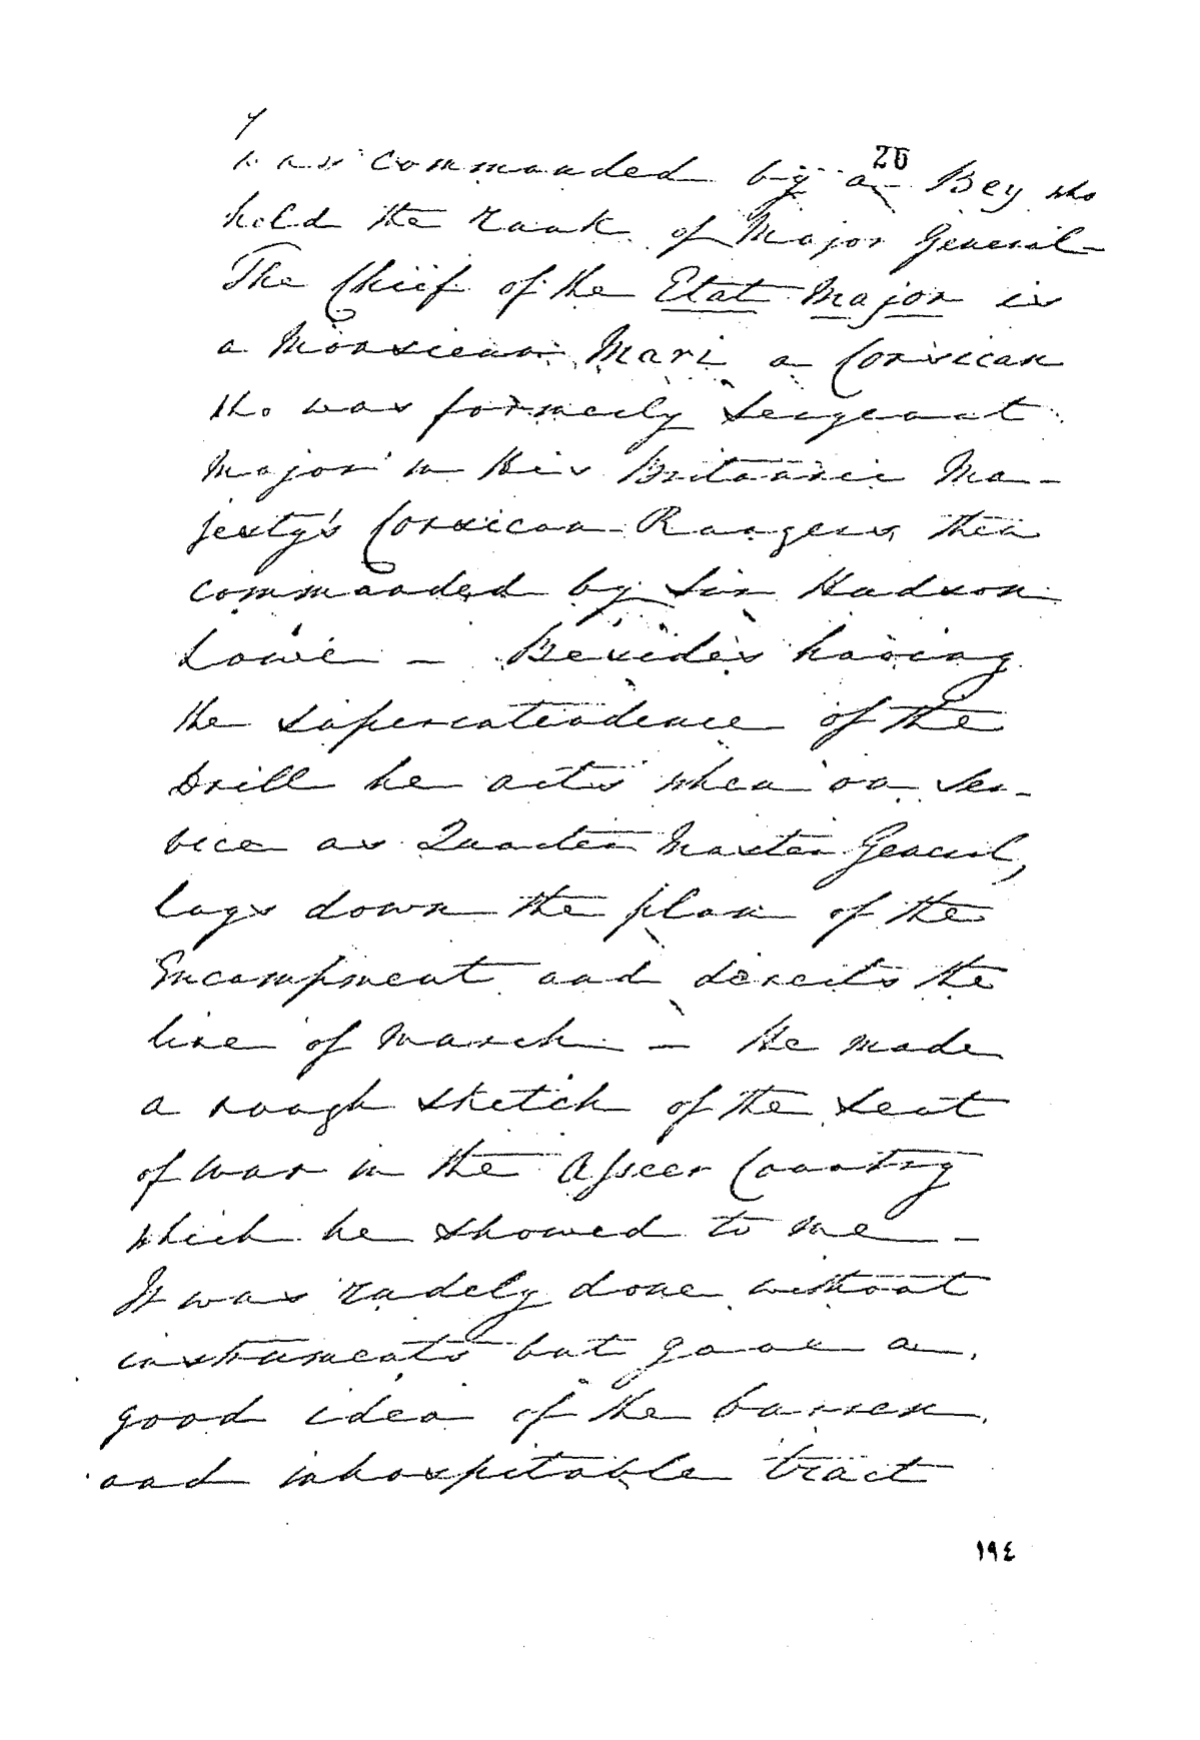 26
was commanded by a Bey who
held the rank of Major General
The Chief of the Etat Major is
a Monsieur Mari a Corsican
who was formerly Sergeant
Major in His Britannic Ma-
jesty's Corsican Rangers then
commanded by Sir Hudson
Lowe – Besides having
the superintendence of the
Drill he acts when on Ser-
vice as Quarter Master General,
lays down the plan of the
Encampment and directs the
line of March – He made
a rough sketch of the seat
of war in the Asseer Country
which he showed to me –
It was rudely done without
instruments but gave a
good idea of the barren
and inhospitable tract
١٩٤